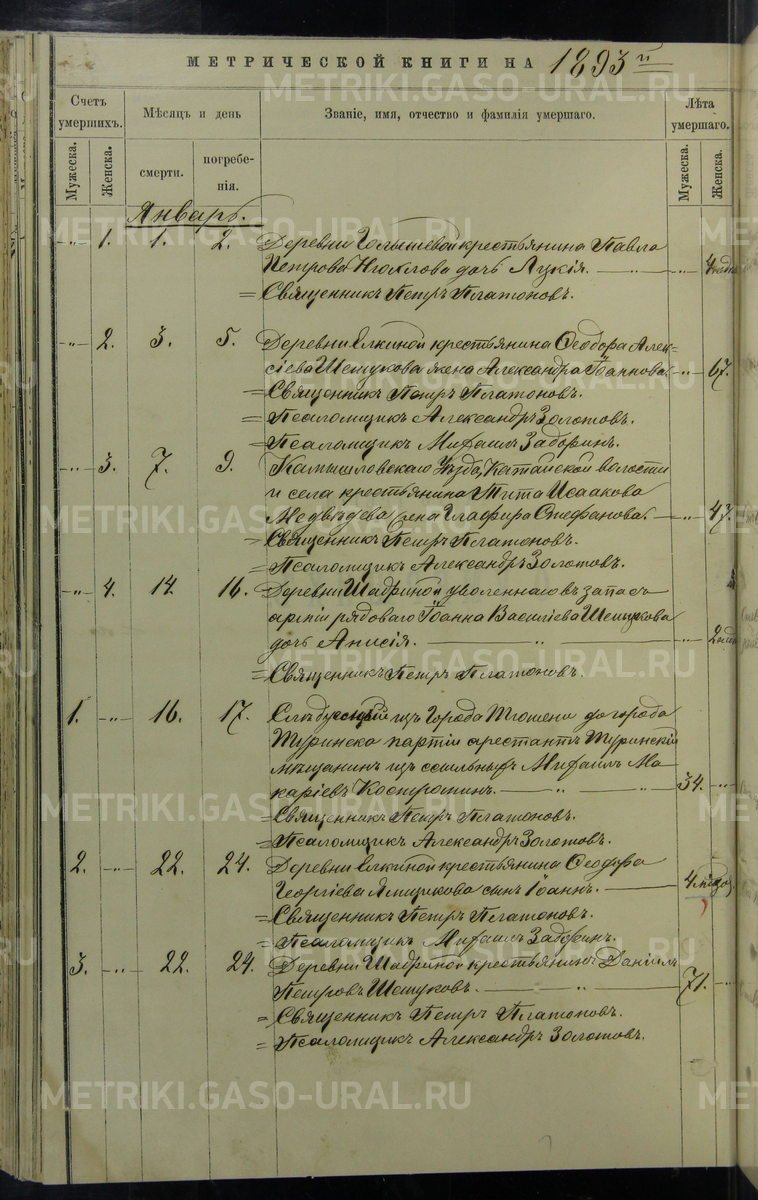 МЕТРИЧЕСКОЙ КНИГИ НА 1893 й
Счетъ умершихъ. Мѣсяцъ и день Званіе, имя, отчество и фамилія умершаго. Лѣта умершаго.
Мужеска. Женска. смерти. погребенія. Мужеска. Женска.
Январь.
-"- 1. 1. 2. Деревни Голышевой крестьянина Павла
Петрова дочь -"- 4
= Священникъ Петръ Платоновъ.
-"- 2. 3. 5. Деревни Елкиной крестьянина Ѳеодора Алек=
сіева Шешукова жена Александра Іоаннова. -"- 67.
= Священникъ Петръ Платоновъ.
= Псаломщикъ Александръ Золотовъ.
= Псаломщикъ Михаилъ Задоринъ.
-"- 3. 7. 9. Камышловскаго Уѣзда, Катайской волости
и села крестьянина Тита Исаакова
Медвѣдева жена Глафира Стефанова. -"- 47.
= Священникъ Петръ Платоновъ.
= Псаломщикъ Александръ Золотовъ.
-"- 4. 14. 16. Деревни Шадриной уволеннаго въ запасъ
арміи рядоваго Іоанна Василіева Шешукова
дочь Анисія. -"- 2
= Священникъ Петръ Платоновъ.
1. -"- 16. 17. Слѣдующій изъ Города Тюмени до города
Туринска партіи арестантъ Туринскій
мѣщанинъ изъ ссыльныхъ Михаилъ Ма
каріевъ Костроминъ. 34. -"-
= Священникъ Петръ Платоновъ.
= Псаломщикъ Александръ Золотовъ.
2. -"- 22. 24. Деревни Елкиной крестьянина Ѳеодора
Георгіева Ямщикова сынъ Іоаннъ. 4 мѣсяц.
= Священникъ Петръ Платоновъ.
= Псаломщикъ Михаилъ Задоринъ.
3. -"- 22. 24. Деревни Шадриной крестьянинъ Даніилъ
Петровъ Шешуковъ. 71. -"-
= Священникъ Петръ Платоновъ.
= Псаломщикъ Александръ Золотовъ.
METRIKI.GASO-URAL.RU